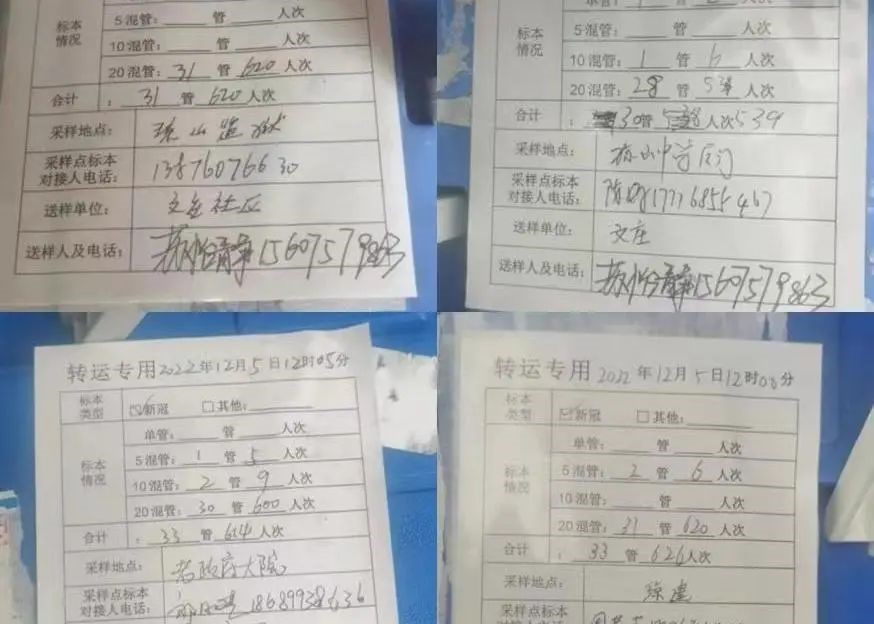 标本
情况
5混管：____管____人次
10混管：____管____人次
20混管：31管620人次
合计：31管620人次
采样地点：琼山监狱
采样点标本
对接人电话：13876076630
送样单位：文庄社区
送样人及电话：15607579863
标本
情况
5混管：____管____人次
10混管：1管6人次
20混管：28管人次
合计：30管人次539
采样地点：琼山中学后门
采样点标本
对接人电话：
送样单位：文庄
送样人及电话：15607579863
转运专用2022年12月5日12时05分
标本
类型
☑新冠 □其他：____
标本
情况
单管：____管____人次
5混管：1管5人次
10混管：2管9人次
20混管：30管600人次
合计：33管614人次
采样地点：老政府大院
采样点标本
对接人电话：18689938636
转运专用2022年12月5日12时08分
标本
类型
☑新冠 □其他：____
标本
情况
单管：____管____人次
5混管：2管6人次
10混管：____管____人次
20混管：31管620人次
合计：33管626人次
采样地点：琼建
采样点标本
对接人电话：